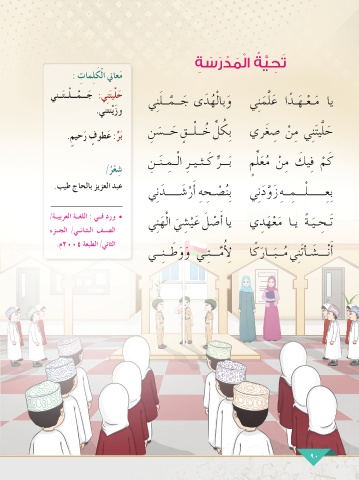 تَحِيَّةُ الْمَدْرَسَةِ
يا مَعْهَدًا عَلَّمَنِي وَبِالْهُدَى جَمَّلَنِي
حَلَّيْتَنِي مِنْ صِغَرِي بِكُلِّ خُلْقٍ حَسَنِ
كَمْ فِيكَ مِنْ مُعَلِّمٍ بَرٍّ كَثِيرِ الْمِنَنِ
بِعِلْمِهِ زَوَّدَنِي بِنُصْحِهِ أَرْشَدَنِي
تَحِيَّةً يا مَعْهَدِي يا أَصْلَ عَيْشِيَ الْهَنِي
أَنْشَأْتَنِي مُبَارَكًا لأُمَّتِي وَوَطَنِي
مَعاني الْكَلِمات :
حَلَّيْتَنِي: جَمَّلْتَني
وزَيَّنْتَني.
بَرّ: عَطوفٍ رَحيمٍ.
شِعْرُ/
عبد العزيز بالحاج طيب.
• ورد في : اللغة العربية/
الصف الثاني/ الجزء
الثاني/ الطبعة ٢٠٠٤م.
٩٠